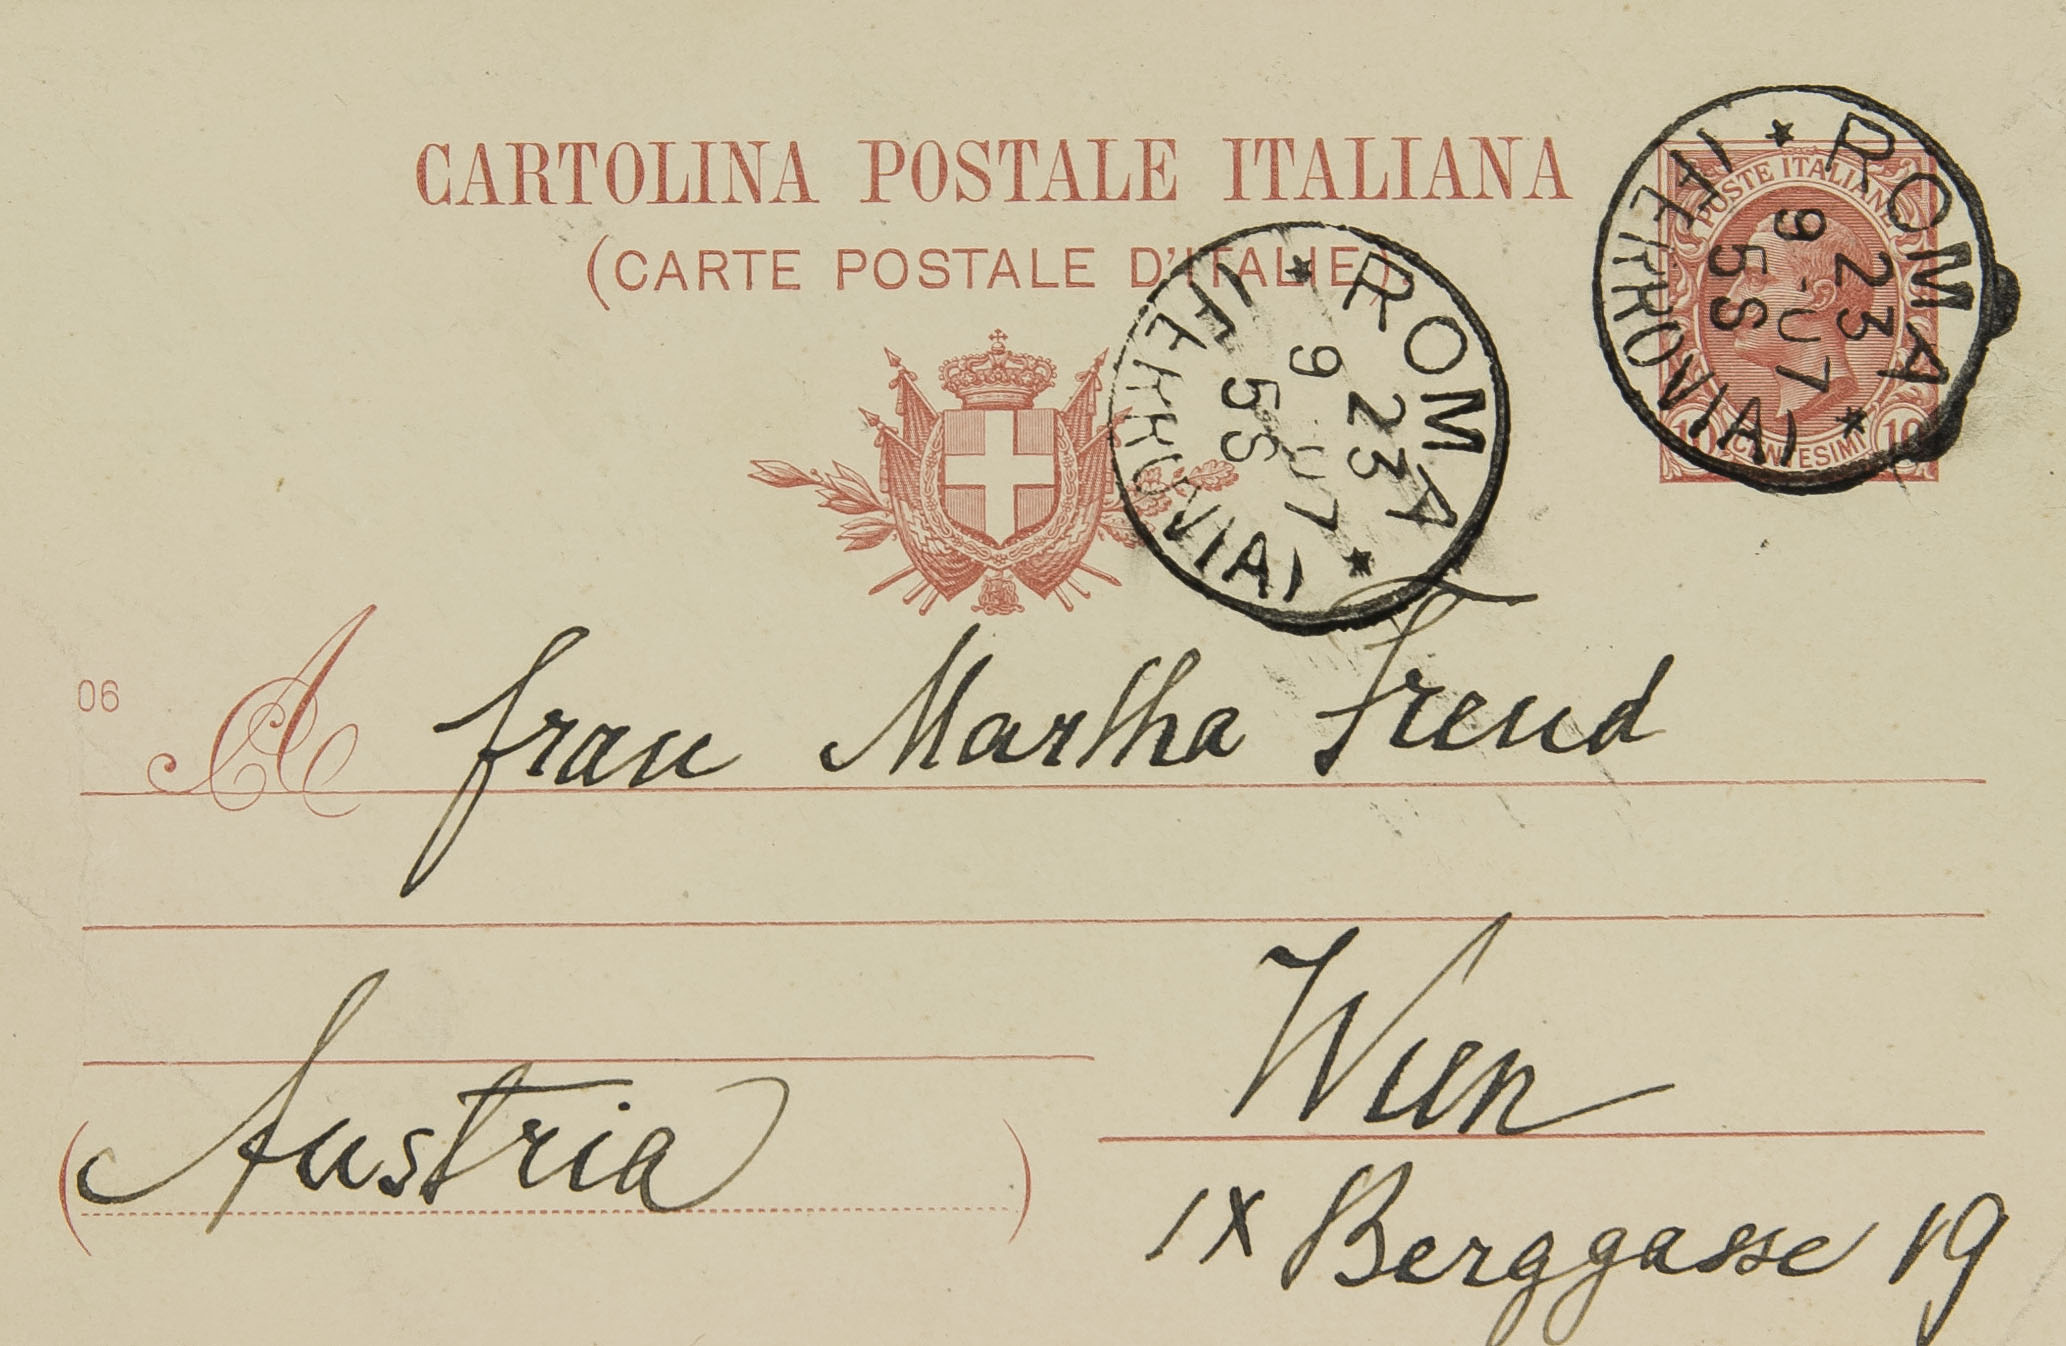 CARTOLINA POSTALE ITALIANA
(CARTE POSTALE D'ITALIE)
POSTE ITALIANE
10 CENTESIMI 10
ROMA
(FERROVIA)
23
9-07
5S
ROMA
(FERROVIA)
23
9 07
5S
06
A Frau Martha Freud
Wien
(Austria)
IX Berggasse 19